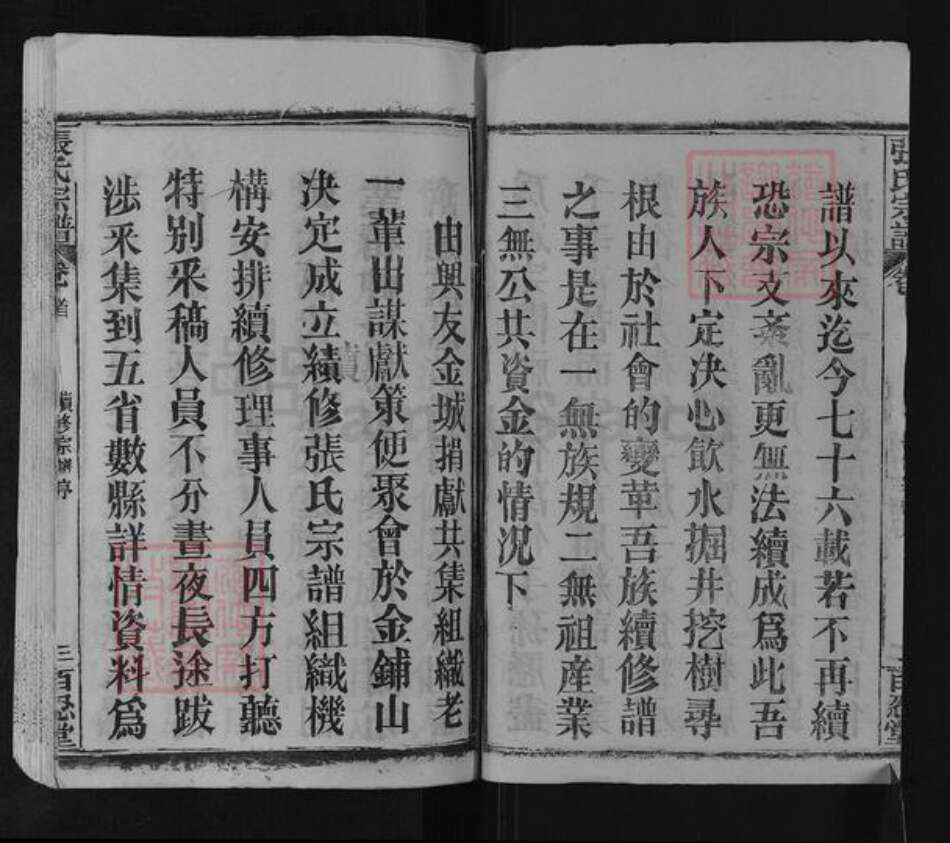 譜以來迄今七十六載若不再續
恐宗支紊亂更無法續成爲此吾
族人下定决心飲水掘井挖樹尋
根由於社會的變革吾族續修譜
之事是在一無族規二無祖産業
三無公共資金的情况下
由興友金城捐獻共集組織老
一輩出謀獻策便聚會於金鋪山
决定成立續修張氏宗譜組織機
構安排續修理事人員四方打聽
特别采稿人員不分晝夜長途跋
涉采集到五省數縣詳情資料爲
張氏宗譜
卷首
續修宗譜序
三
百忍堂
張氏宗譜
百忍堂